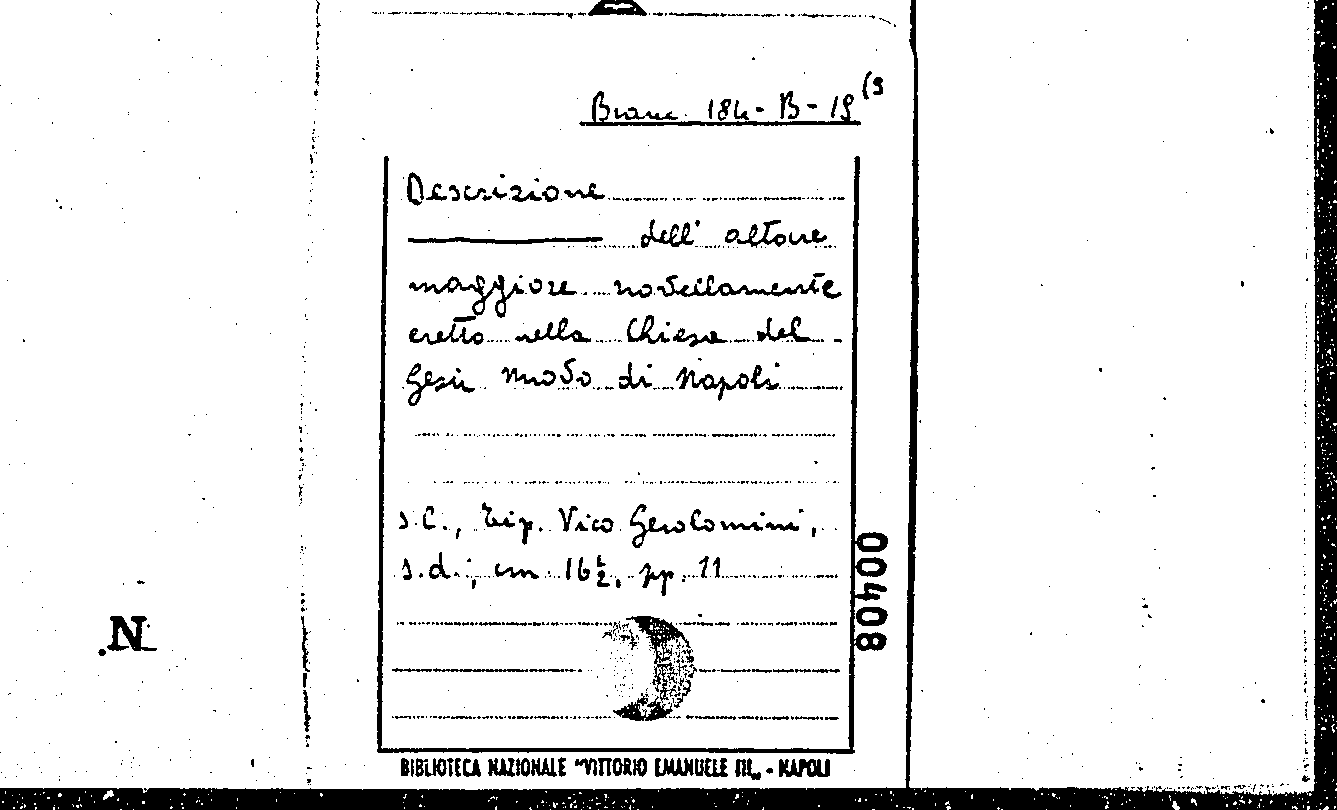 Branc. 184-B-19 (9
Descrizione
dell' altare
maggiore novellamente
eretto nella Chiesa del
Gesù Nuovo di Napoli
s.l., Tip. Vico Gerolomini,
s.d.; cm 16 1/2, pp. 11
00408
N
BIBLIOTECA NAZIONALE "VITTORIO EMANUELE III„ - NAPOLI